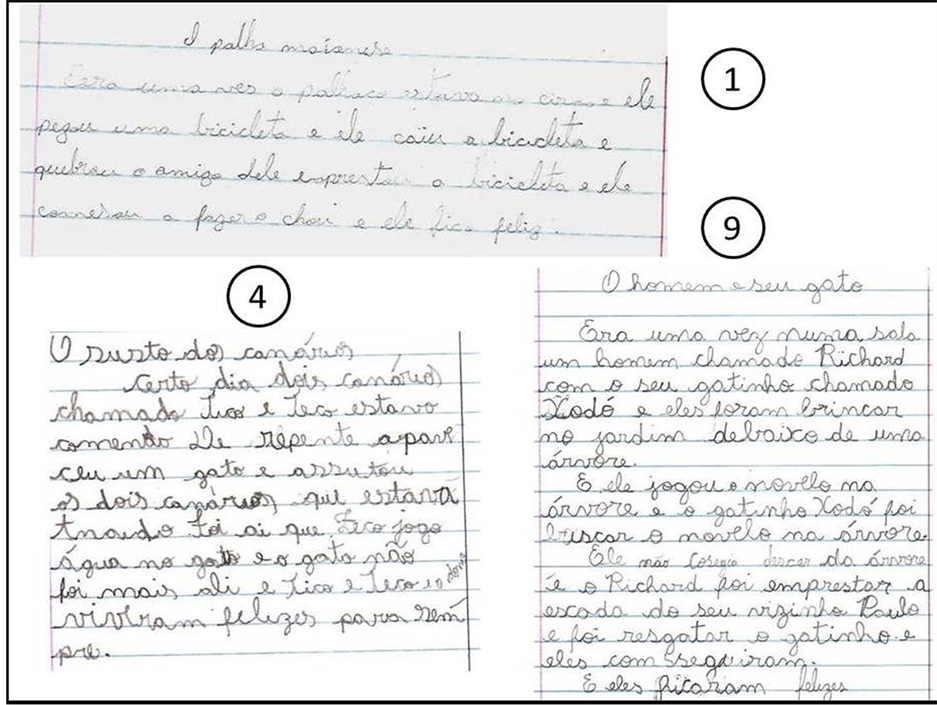 O palha maianese
Cera uma ves o palhaco estava no circo e ele
pegou uma bicicleta e ele caiu a bicicleta e
quebrou o amigo dele emprestou a bicicleta e ele
comesou a fazer o chou e ele fica feliz.
1
9
4
O susto dos canários
Certo dia dois canários
chamado Tico e Teco estavo
comendo De repente apare
ceu um gato e assutou
os dois canários que estava
foi ai que Teco jogo
água no gato e o gato não
foi mais ali e Tico e Teco e o dono
viviram felizes para sem
pre.
O homem e seu gato
Era uma vez numa sala
um homem chamado Richard
com o seu gatinho chamado
Xodó e eles foram brincar
no jardim debaixo de uma
árvore.
E ele jogou o novelo na
árvore e o gatinho Xodó foi
buscar o novelo na árvore
Ele não cosegia descer da árvore
e o Richard foi emprestar a
escada do seu vizinho Paulo
e foi resgatar o gatinho e
eles com sseguiram.
E eles ficaram felizes